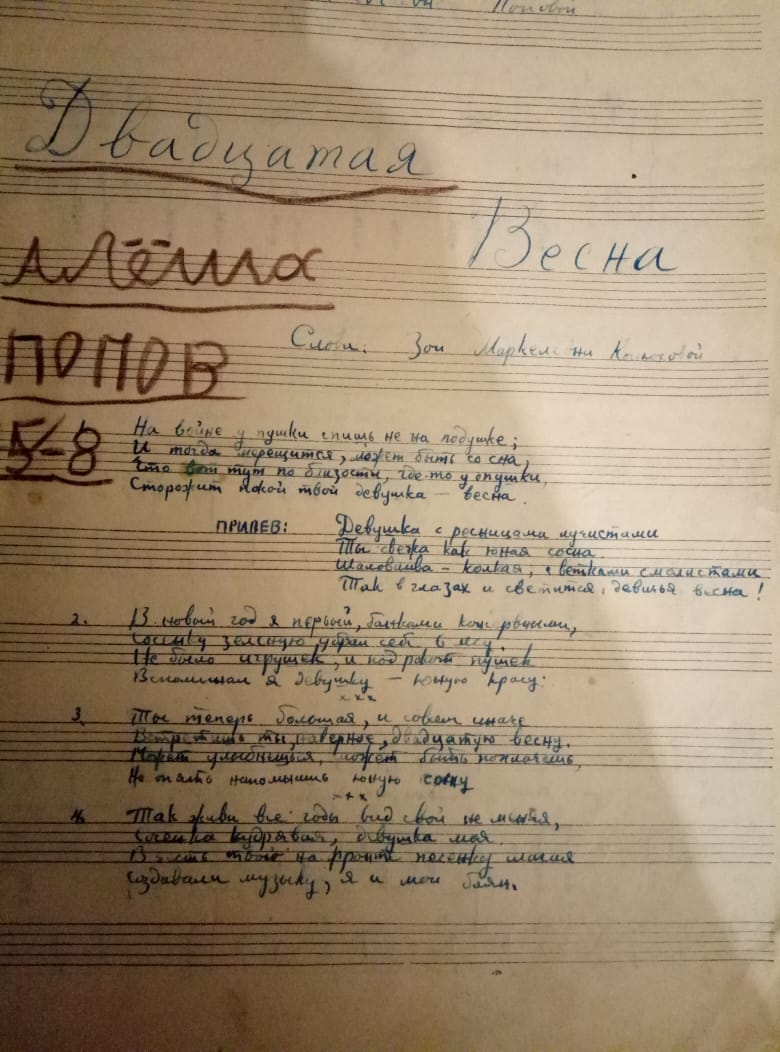 Поповой
Двадцатая
Весна
Алёша
Попов
5-8
Слова: Зои Маркеловни Конюховой
На войне у пушки спишь не на подушке;
И тогда мерещится, может быть со сна,
Что вот тут по близости, где-то у опушки,
Сторожит покой твой девушка – весна.
ПРИПЕВ: Девушка с ресницами лучистами
Ты свежа как юная сосна.
Шаловлива – колкая, с ветками смолистами
Так в глазах и светится, девичья весна!
2. В новый год я первый, банками консервными,
Сосенку зеленую убрал себе в лесу.
Не было игрушек, и под рокот пушек
Вспоминал я девушку – юную красу.
x x x
3. Ты теперь большая, и совсем иначе
Встретишь ты, наверное, двадцатую весну.
Может улыбнешься, может быть поплачешь,
Но опять напомнишь юную сосну
x x x
4. Так живи все годы вид свой не меняя,
Сосенка кудрявая, девушка моя.
В честь твою на фронте песенку слагая
Создавали музыку, я и мой баян.